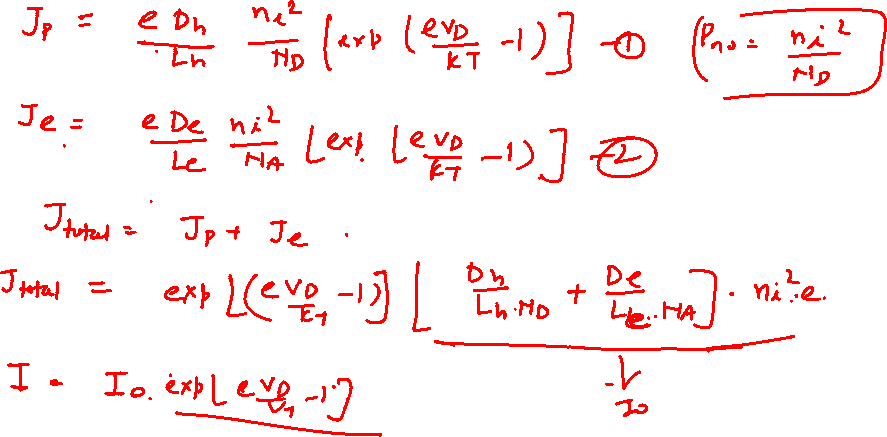 Jp = e Dh / Lh ni² / ND [exp (eVD / KT -1)] -① (Pno = ni² / ND)
Je = e De / Le ni² / NA [exp. [eVD / KT -1)] -②
Jtotal = Jp + Je .
Jtotal = exp [(eVD / KT -1)] [Dh / Lh.ND + De / Le.NA] . ni².e.
I = Io. exp[eVD / VT -1] Io